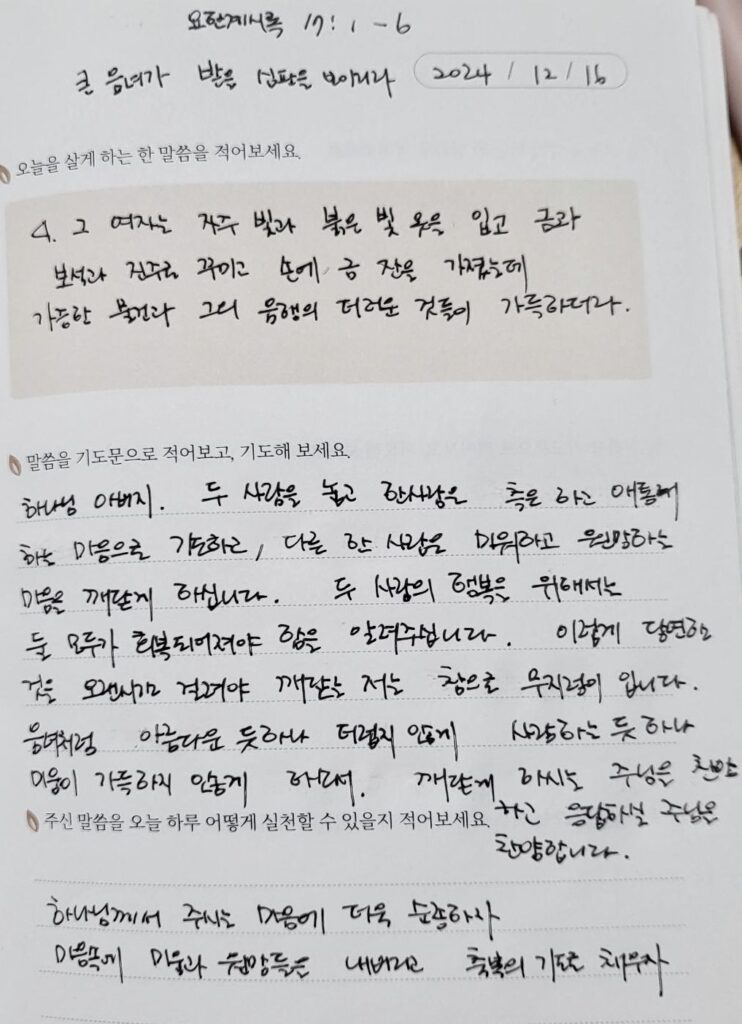 요한계시록 17:1-6
큰 음녀가 받을 심판을 보이리라 2024 / 12 / 16
오늘을 살게 하는 한 말씀을 적어보세요.
4. 그 여자는 자주 빛과 붉은 빛 옷을 입고 금과
보석과 진주로 꾸미고 손에 금 잔을 가졌는데
가증한 물건과 그의 음행의 더러운 것들이 가득하더라.
말씀을 기도문으로 적어보고, 기도해 보세요.
하나님 아버지. 두 사람을 놓고 한사람은 측은 하고 애통해
하는 마음으로 기도하고, 다른 한 사람은 미워하고 원망하는
마음을 깨닫게 하십니다. 두 사람의 행복을 위해서는
둘 모두가 회복되어져야 함을 알려주십니다. 이렇게 당연한
것을 오랜시간 걸려야 깨닫는 저는 참으로 무지렁이 입니다.
음녀처럼 아름다운 듯하나 더럽지 않게 사랑하는 듯 하나
미움이 가득하지 않게 하소서. 깨닫게 하시는 주님을 찬양
하고 응답하실 주님을
찬양합니다.
주신 말씀을 오늘 하루 어떻게 실천할 수 있을지 적어보세요.
하나님께서 주시는 마음에 더욱 순종하자
마음속에 미움과 원망들은 내버리고 축복의 기도로 채우자